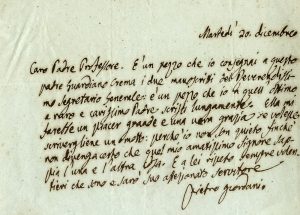 Martedì 20. dicembre
Caro Padre Professore. È un pezzo che io consegnai a questo
padre Guardiano Crema i due manuscritti del Reverendissi-
mo Segretario Generale: è un pezzo che io a quell'ottimo
e raro e carissimo Padre scrissi lungamente. Ella mi
farebbe un piacer grande e una vera grazia se volesse
scrivermene un motto: perchè io non son quieto, finchè
non divenga certo che quel mio amatissimo Signore sap-
pia l'una e l'altra cosa. E a lei ripeto sempre volen-
tieri che sono e sarò suo affezionato servitore
pietro giordani